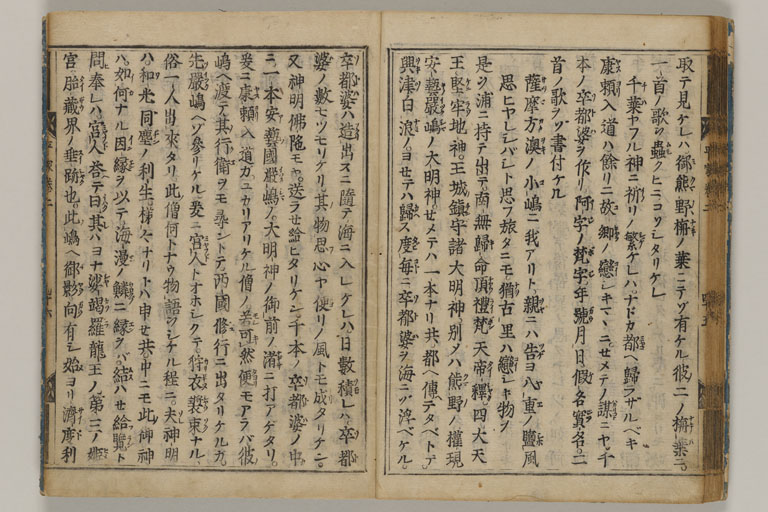 取テ見ケレハ御熊野梛ノ葉ニテゾ有ケル彼二ノ梛葉ニ
一首ノ歌ヲ蟲クヒニコソシタリケレ
千葉ヤフル神ニ祈リノ繁ケレハナドカ都ヘ歸ラザルベキ
康頼入道ハ餘リニ故郷ノ戀シキマヽニセメテノ謀ニヤ千
本ノ卒都婆ヲ作リ阿字ノ梵字年號月日假名實名二
首ノ歌ヲゾ書付ケル
薩摩方澳ノ小嶋ニ我アリト親ニハ告ヨ八重ノ鹽風
思ヒヤレシバシト思フ旅タニモ猶古里ハ戀シキ物ヲ
是ヲ浦ニ持テ出テ南無歸命頂禮梵天帝釋四大天
王堅牢地神王城鎮守諸大明神別メハ熊野ノ權現
安藝嚴嶋ノ大明神セメテハ一本ナリ共都ヘ傳テタベトテ
興津白浪ノヨセテハ歸ス度毎ニ卒都婆ヲ海ニゾ浮ベケル
卒都婆ハ造出スニ隨テ海ニ入レケレハ日數積レハ卒都
婆ノ數モツモリケリ其物思心ヤ便リノ風トモ成タリケン
又神明佛陀モヤ送ラセ給ヒタリケン千本ノ卒都婆ノ中
ニ一本安藝國嚴嶋ノ大明神ノ御前ノ渚ニ打アゲタリ
爰ニ康頼入道カユカリアリケル僧ノ若可然便モアラバ彼
嶋ヘ渡テ其行衛ヲモ尋ントテ西國修行ニ出タリケルカ
先嚴嶋ヘゾ參リケル爰ニ宮人トオホシクテ狩衣裝束ナル
俗一人出來タリ此僧何トナウ物語ヲシケル程ニ夫神明
ハ和光同塵ノ利生樣々ナリトハ申セ共中ニモ此御神
ハ如何ナル因縁ヲ以テ海漫ノ鱗ニ縁ヲバ結ハセ給覽ト
問奉レハ宮人答テ曰其ハヨナ娑竭羅龍王ノ第三ノ姫
宮胎藏界ノ垂跡也此嶋ヘ御影向有シ始ヨリ濟度利